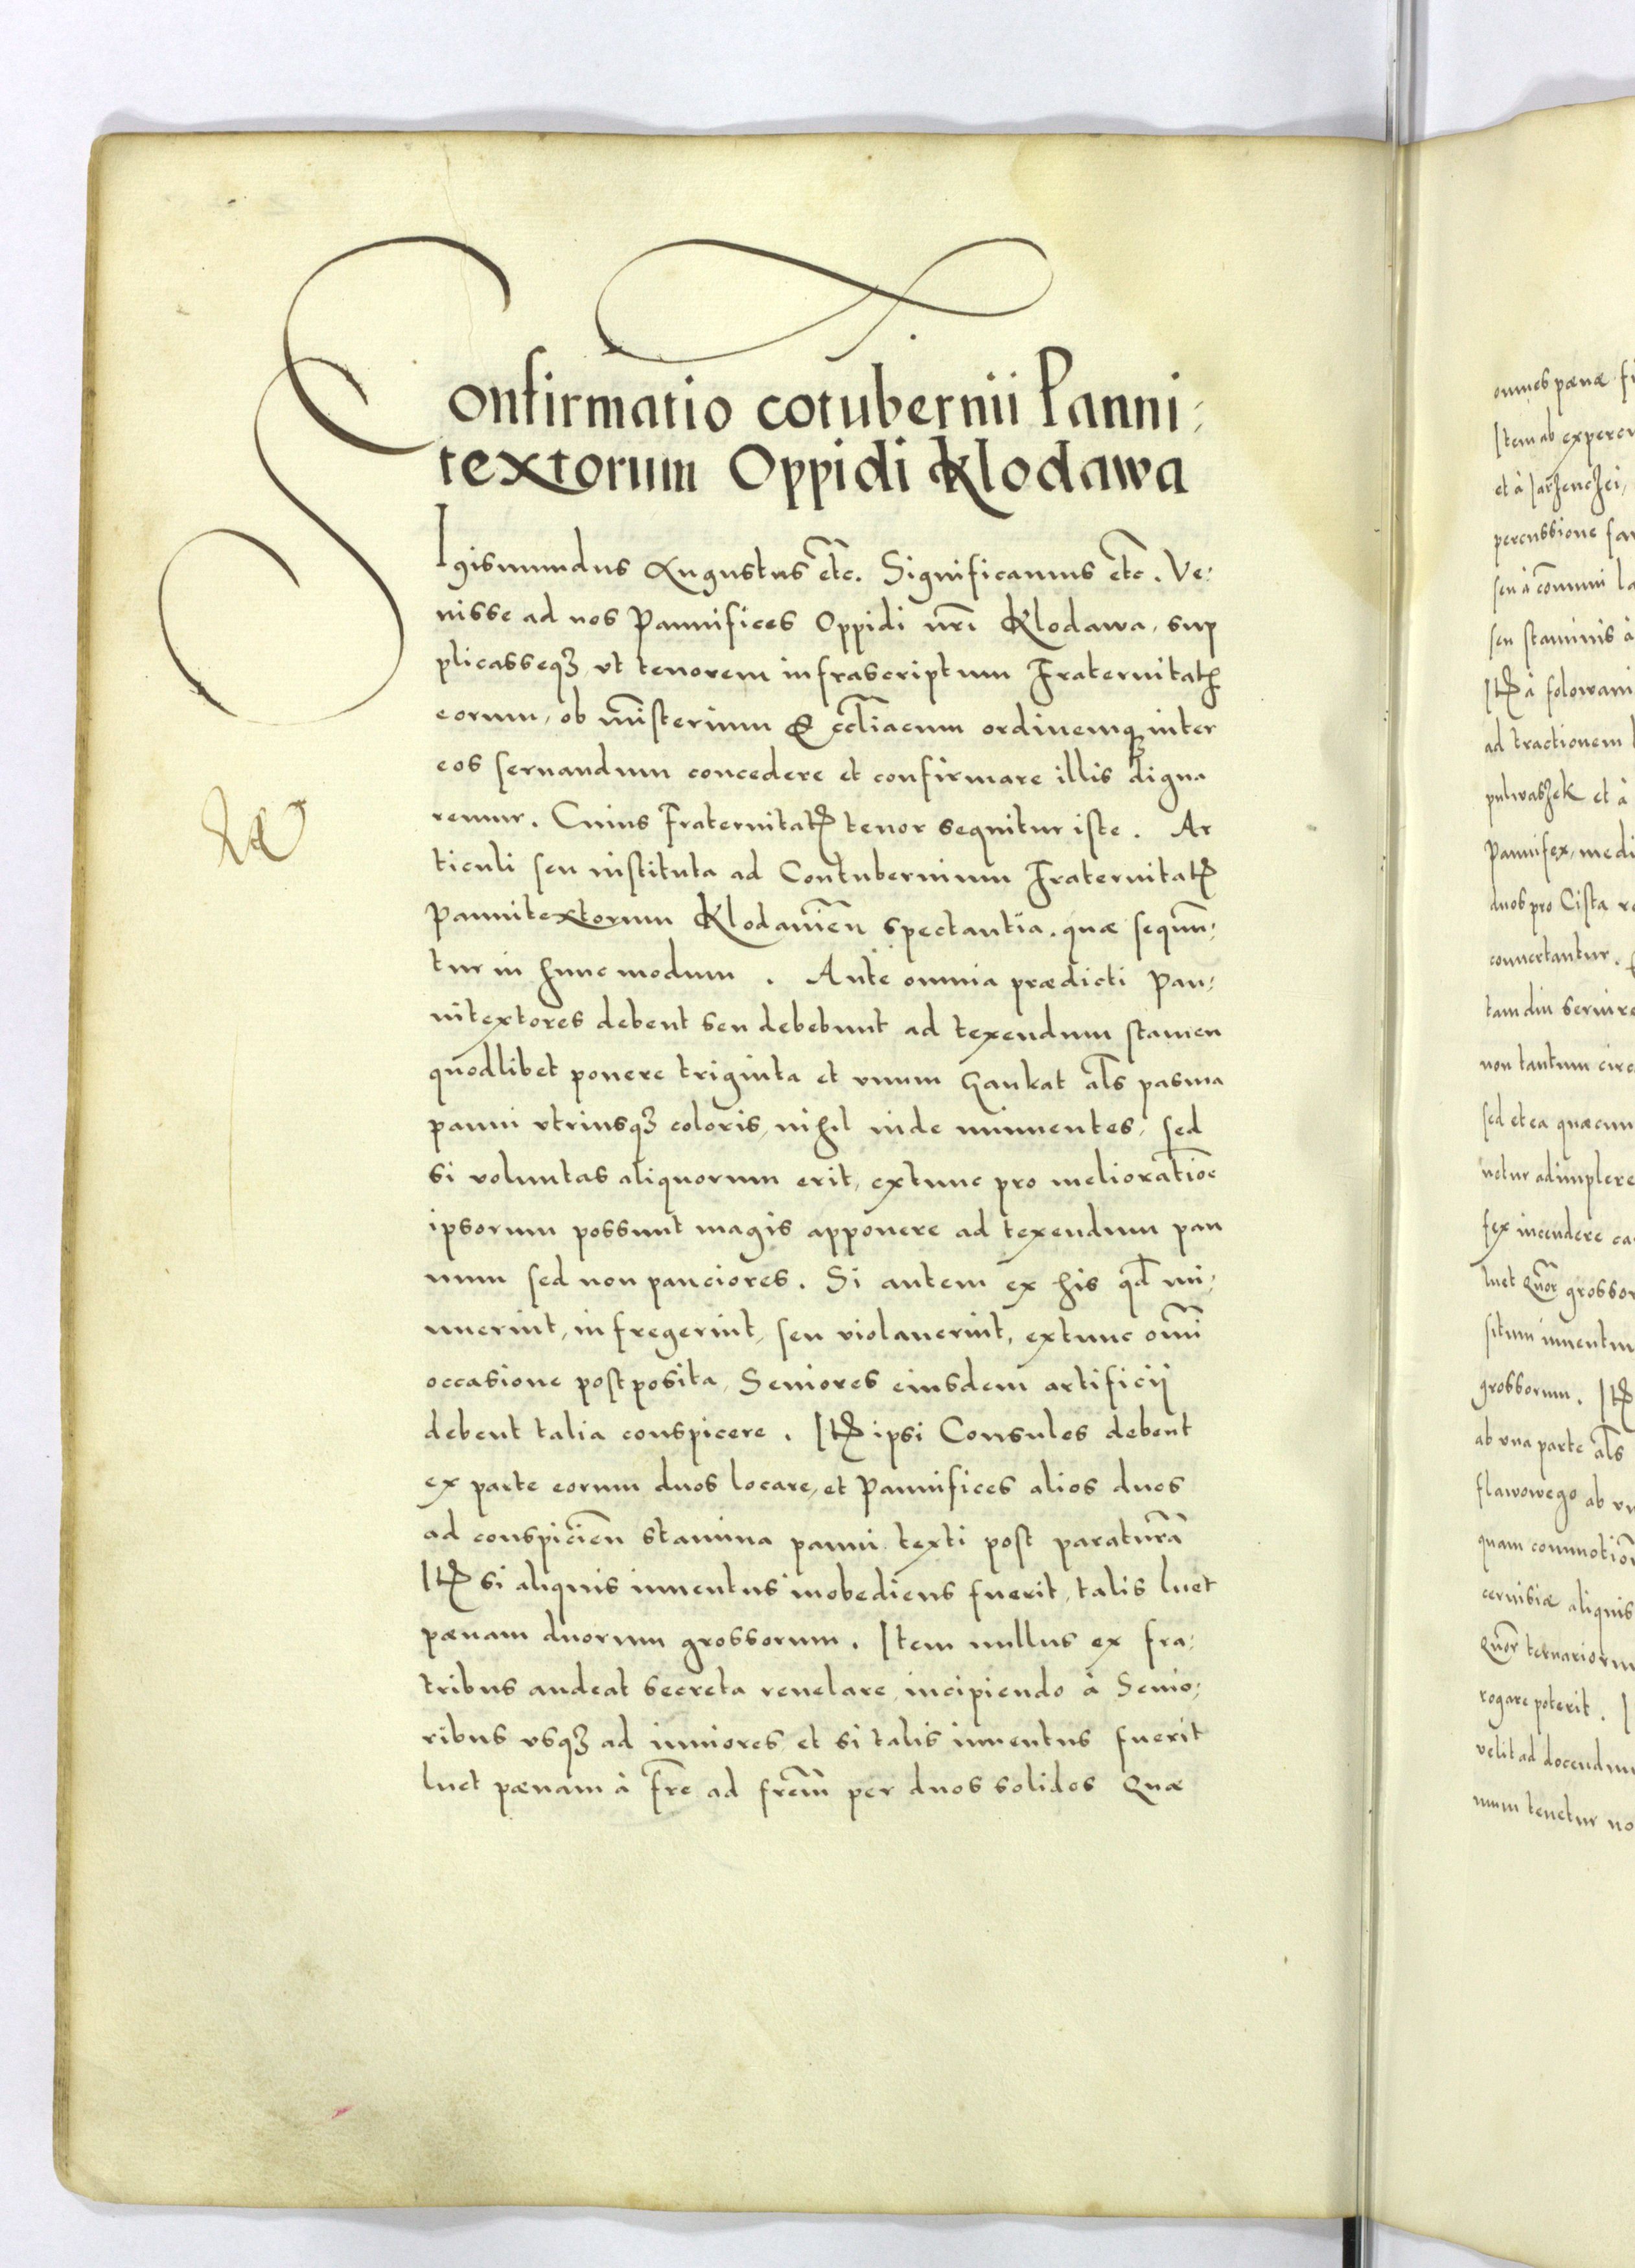 Confirmatio cotubernii Panni-
textorum Oppidi Klodawa
Sigismundus Augustus etc̃. Significamus etc̃. Ve-
nisse ad nos Pannifices Oppidi nr̃i Klodawa, sup
plicasseqꝫ vt tenorem infrascriptum Fraternitatꝭ
eorum, ob mĩsterium & eccl̃iacum ordinemqꝫ inter
eos seruandum concedere et confirmare illis digna
remur. Cuius Fraternitatꝭ tenor sequitur iste. Ar
ticuli seu instituta ad Contubernium Fraternitatꝭ
Pannitextorum Klodawien̄ spectantia. quæ sequun-
tur in hunc modum. Ante omnia prædicti Pan-
nitextores debent seu debebunt ad texendum stamen
quodlibet ponere triginta et vnum Gankat al̃s pasma
panni vtriusqꝫ coloris, nihil inde minuentes, sed
si voluntas aliquorum erit, extunc pro melioratiõe
ipsorum possunt magis apponere ad texendum pan
num sed non pauciores. Si autem ex his qd̃ mi-
nuerint, infregerint, seu violauerint, extunc om̃i
occasione postposita, Seniores eiusdem artificij
debent talia conspicere. Itꝭ ipsi Consules debent
ex parte eorum duos locare, et Pannifices alios duos
ad conspicien̄ stamina panni texti post paraturã
Itꝭ si aliquis inuentus inobediens fuerit, talis luet
pænam duorum grossorum. Item nullus ex fra-
tribus audeat secreta reuelare incipiendo à Senio-
ribus vsqꝫ ad iuniores et si talis inuentus fuerit
luet pænam à fr̃e ad fr̃em per duos solidos Quæ
omnes pænæ
Item ab
et à
percussione
seu à com̃uni
seu staminis à
Itꝭ à folowani
ad tractionem
pulwaszek et à
Pannifex, medi
duos pro Cista
conuertantur.
tamdiu seruire
non tantum circ
sed et ea quæcun
netur adimplere
fex incendere
luet Quor̃ grossor
situm inuentu
grossorum. Itꝭ
ab vna parte al̃s
flawowego ab vn
quam commotiõ
ceruisiæ aliquis
Quor̃ ternariorum
rogare poterit.
velit ad docendum
num tenetur no